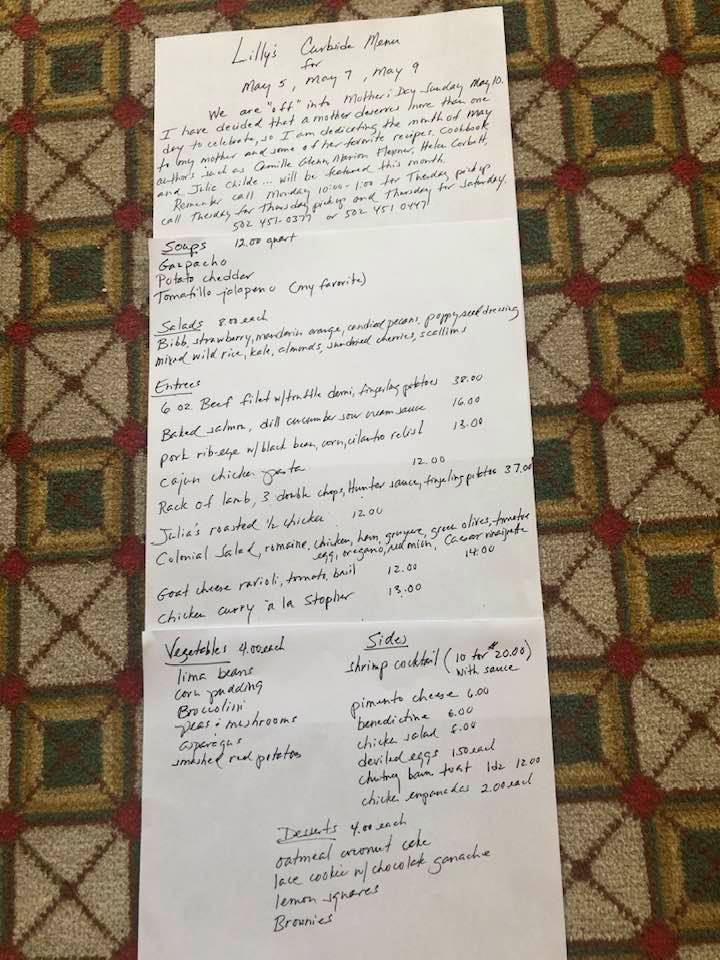 Lilly's Curbside Menu
for
May 5, May 7, May 9
We are "off" into Mother's Day Sunday May 10.
I have decided that a mother deserves more than one
day to celebrate, so I am dedicating the month of May
to my mother and some of her favorite recipes. Cookbook
authors such as Camille Glenn, Marion Flexner, Helen Corbett,
and Julia Childe... will be featured this month.
Remember call Monday 10:00-1:00 for Tuesday pickup
call Tuesday for Thursday pickup and Thursday for Saturday.
502 451-0377 or 502 451 0447
Soups 12.00 quart
Gazpacho
Potato cheddar
Tomatillo jalapeno (my favorite)
Salads 8.00 each
Bibb, strawberry, mandarin orange, candied pecans, poppyseed dressing
mixed wild rice, kale, almonds, sundried cherries, scallions
Entrees
6 oz. Beef filet w/truffle demi, fingerling potatoes 38.00
Baked salmon, dill cucumber sour cream sauce 16.00
pork rib-eye w/black bean, corn, cilantro relish 13.00
Cajun chicken pasta 12.00
Rack of lamb, 3 double chops, Hunter sauce, fingerling potatoes 37.00
Julia's roasted ½ chicken 12.00
Colonial Salad, romaine, chicken, ham, gruyere, green olives, tomatoes
egg, oregano, red onion, Caesar vinaigrette
14.00
Goat cheese ravioli, tomato, basil 12.00
Chicken curry a la Stopher 13.00
Vegetables 4.00 each
lima beans
corn pudding
Broccolini
peas + mushrooms
asparagus
smashed red potatoes
Sides
shrimp cocktail (10 for $20.00)
with sauce
pimento cheese 6.00
benedictine 6.00
chicken salad 8.00
deviled eggs 1.50 each
chutney bacon toast 1dz 12.00
chicken empanadas 2.00 each
Desserts 4.00 each
oatmeal coconut cake
lace cookie w/ chocolate ganache
lemon squares
Brownies